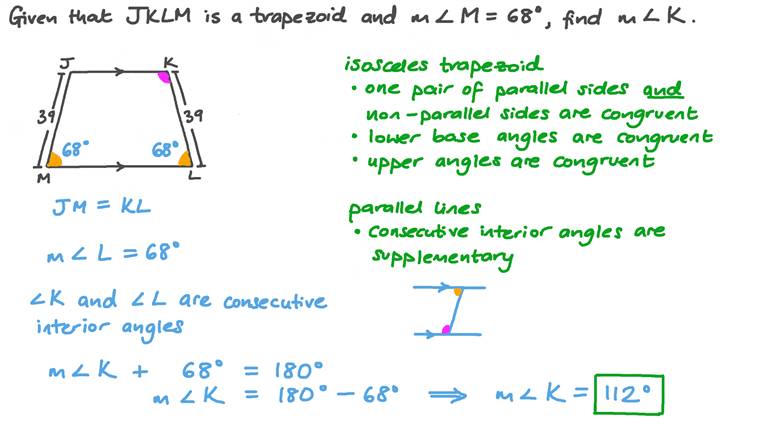 Given that JKLM is a trapezoid and m∠M = 68°, find m∠K.
J K
39 39
68° 68°
M L
isosceles trapezoid
• one pair of parallel sides and
non-parallel sides are congruent
• lower base angles are congruent
• upper angles are congruent
JM = KL
m∠L = 68°
∠K and ∠L are consecutive
interior angles
parallel lines
• consecutive interior angles are
supplementary
m∠K + 68° = 180°
m∠K = 180° - 68° ⟹ m∠K = 112°